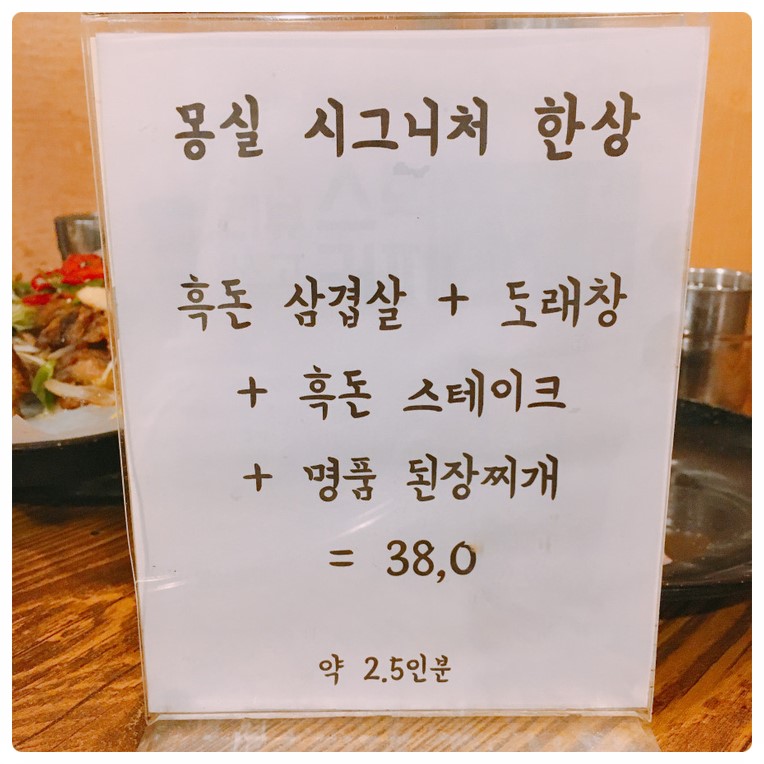 몽실 시그니처 한상
흑돈 삼겹살 + 도래창
+ 흑돈 스테이크
+ 명품 된장찌개
= 38,0
약 2.5인분